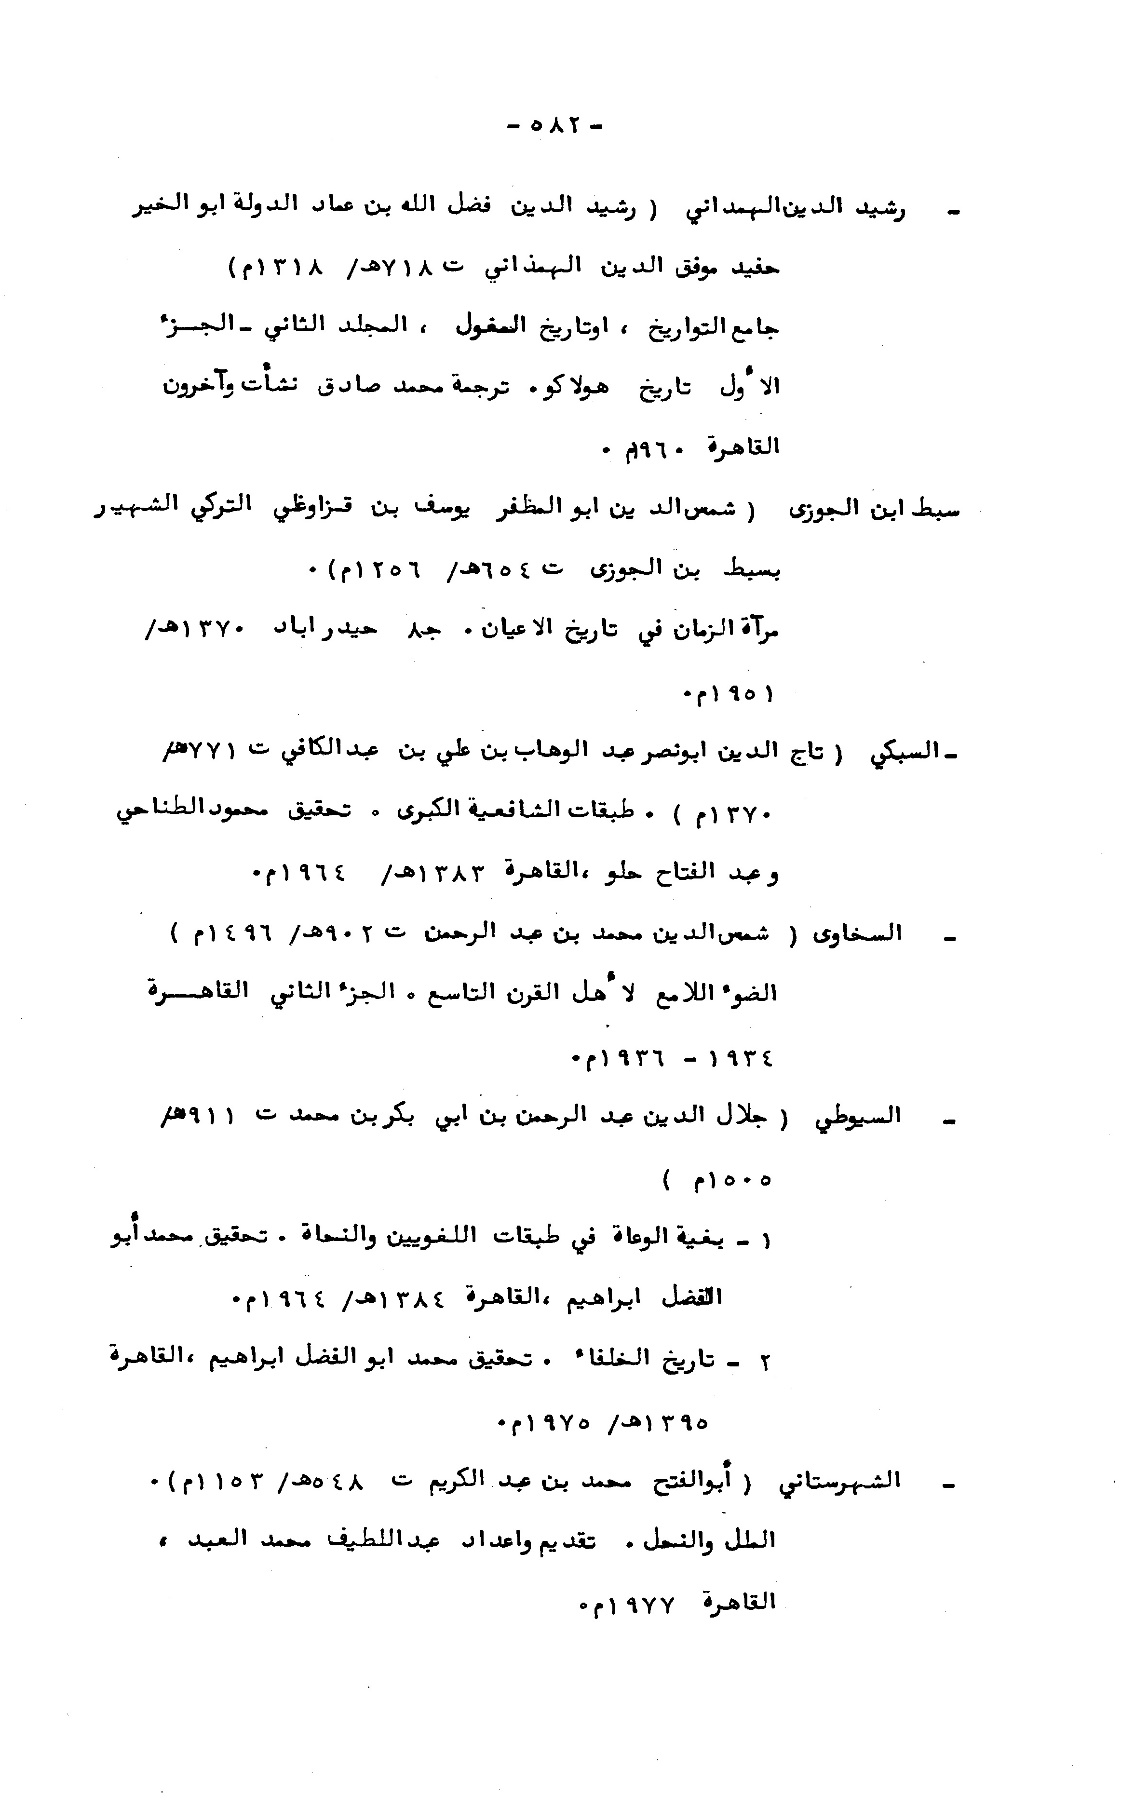 - ٥٨٢ -
- رشيد الدين الهمداني ( رشيد الدين فضل الله بن عماد الدولة ابو الخير
حفيد موفق الدين الهمذاني ت ٧١٨هـ/ ١٣١٨م)
جامع التواريخ ، اوتاريخ المغول ، المجلد الثاني - الجـزء
الأول تاريخ هولاكو . ترجمة محمد صادق نشأت وآخرون
القاهرة ١٩٦٠م .
سبط ابن الجوزى ( شمس الدين ابو المظفر يوسف بن قزاوغلي التركي الشهير
بسبط بن الجوزى ت ٦٥٤هـ/ ١٢٥٦م) .
مرآة الزمان في تاريخ الاعيان . جـ٨ حيدر اباد ١٣٧٠هـ/
١٩٥١م .
- السبكي ( تاج الدين ابونصر عبد الوهاب بن علي بن عبدالكافي ت ٧٧١هـ/
١٣٧٠م ) . طبقات الشافعية الكبرى . تحقيق محمود الطناحي
وعبد الفتاح حلو ،القاهرة ١٣٨٣هـ/ ١٩٦٤م .
- السخاوى ( شمس الدين محمد بن عبد الرحمن ت ٩٠٢هـ/ ١٤٩٦م )
الضوء اللامع لأهل القرن التاسع . الجزء الثاني القاهـــرة
١٩٣٤ - ١٩٣٦م .
- السيوطي ( جلال الدين عبد الرحمن بن ابي بكر بن محمد ت ٩١١هـ/
١٥٠٥م )
١ - بغية الوعاة في طبقات اللغويين والنحاة . تحقيق محمد أبو
الفضل ابراهيم ،القاهرة ١٣٨٤هـ/ ١٩٦٤م .
٢ - تاريخ الخلفاء . تحقيق محمد ابو الفضل ابراهيم ،القاهرة
١٣٩٥هـ/ ١٩٧٥م .
- الشهرستاني ( أبوالفتح محمد بن عبد الكريم ت ٥٤٨هـ/ ١١٥٣م) .
الملل والنحل . تقديم واعداد عبداللطيف محمد العبد ،
القاهرة ١٩٧٧م .